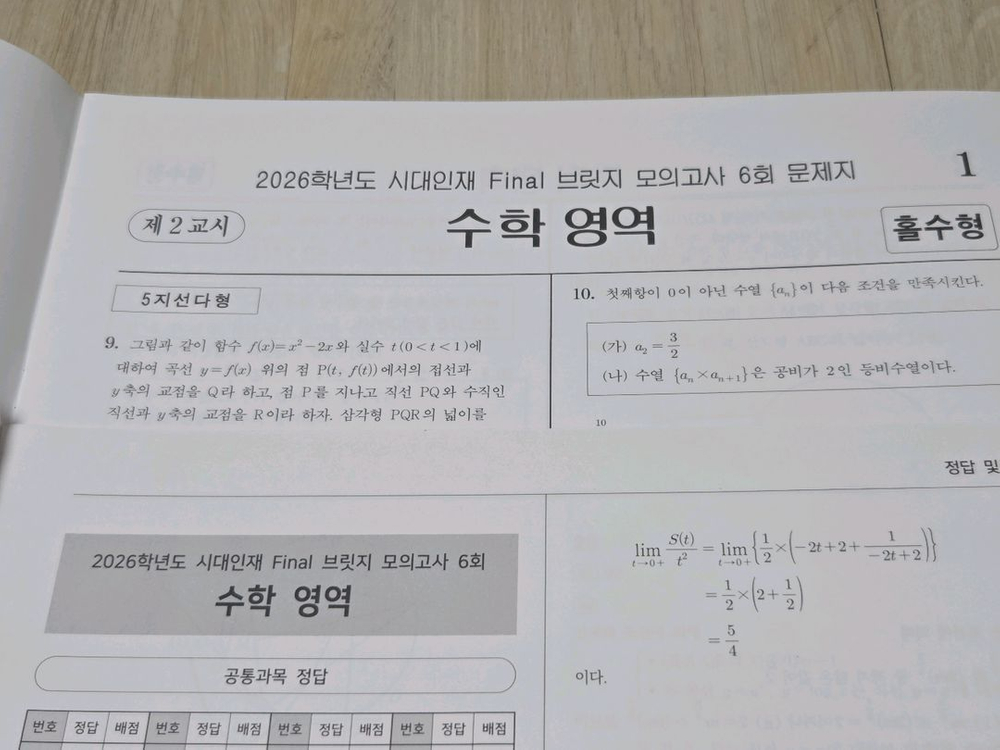 2026학년도 시대인재 Final 브릿지 모의고사 6회 문제지
1
제 2 교시
수학 영역
홀수형
5지선다형
9. 그림과 같이 함수 f(x)=x²−2x와 실수 t(0<t<1)에
대하여 곡선 y=f(x) 위의 점 P(t, f(t))에서의 접선과
y축의 교점을 Q라 하고, 점 P를 지나고 직선 PQ와 수직인
직선과 y축의 교점을 R이라 하자. 삼각형 PQR의 넓이를
10. 첫째항이 0이 아닌 수열 {aₙ}이 다음 조건을 만족시킨다.
(가) a₂ = 3/2
(나) 수열 {aₙ×aₙ₊₁}은 공비가 2인 등비수열이다.
10
정답 및
2026학년도 시대인재 Final 브릿지 모의고사 6회
수학 영역
공통과목 정답
번호 정답 배점 번호 정답 배점 번호 정답 배점 번호 정답 배점
lim t→0+ S(t)/t² = lim t→0+ {1/2×(−2t+2+1/(−2t+2))}
= 1/2×(2+1/2)
= 5/4
이다.